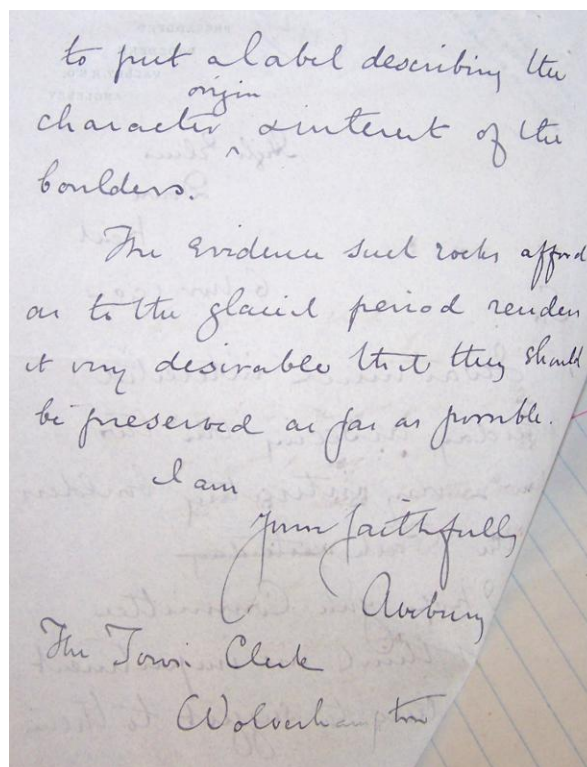 to put a label describing the
origin
character & interest of the
boulders.
The evidence such rocks afford
as to the glacial period renders
it very desirable that they should
be preserved as far as possible.
I am
Yours faithfully
Avebury
The Town Clerk
Wolverhampton